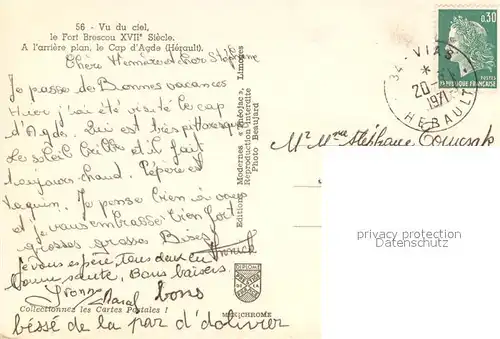 56 - Vu du ciel,
le Fort Brescou XVIIe Siècle.
A l'arrière plan, le Cap d'Agde (Hérault).
Chère et cher Stéphane
Je passe de Bonnes vacances
Hier j'ai été visité le cap
d'Agde. Lui est très pittoresque
le soleil brille et il fait
toujours chaud. Pépère et
taquin. Je pense bien à vous
et je vous embrasse bien fort
grosses grosses Bises
je vous espère tous deux en
bonne santé, Bons baisers
Yvonne
Marcel bons
Collectionnez les Cartes Postales !
béssé de la par d'dolivier
Editions Modernes "Théojac", Limoges
Reproduction interdite
Photo Beaujard
DIPLOME
MEXICHROME
0,30
POSTES
REPUBLIQUE FRANÇAISE
34 - VIAS
20-
1971
HERAULT
Mr Mme Stéphane
privacy protection
Datenschutz